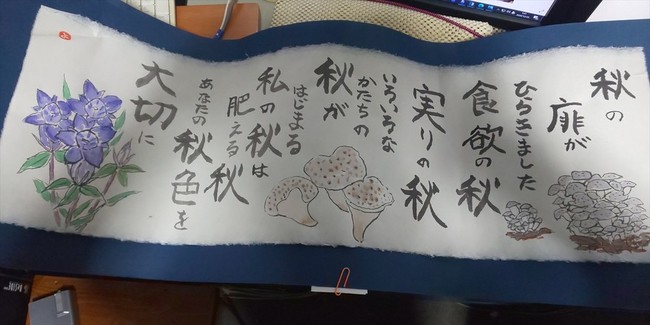 秋の
扉が
ひらきました
食欲の秋
実りの秋
いろいろな
かたちの
秋が
はじまる
私の秋は
肥える秋
あなたの
秋色を
大切に